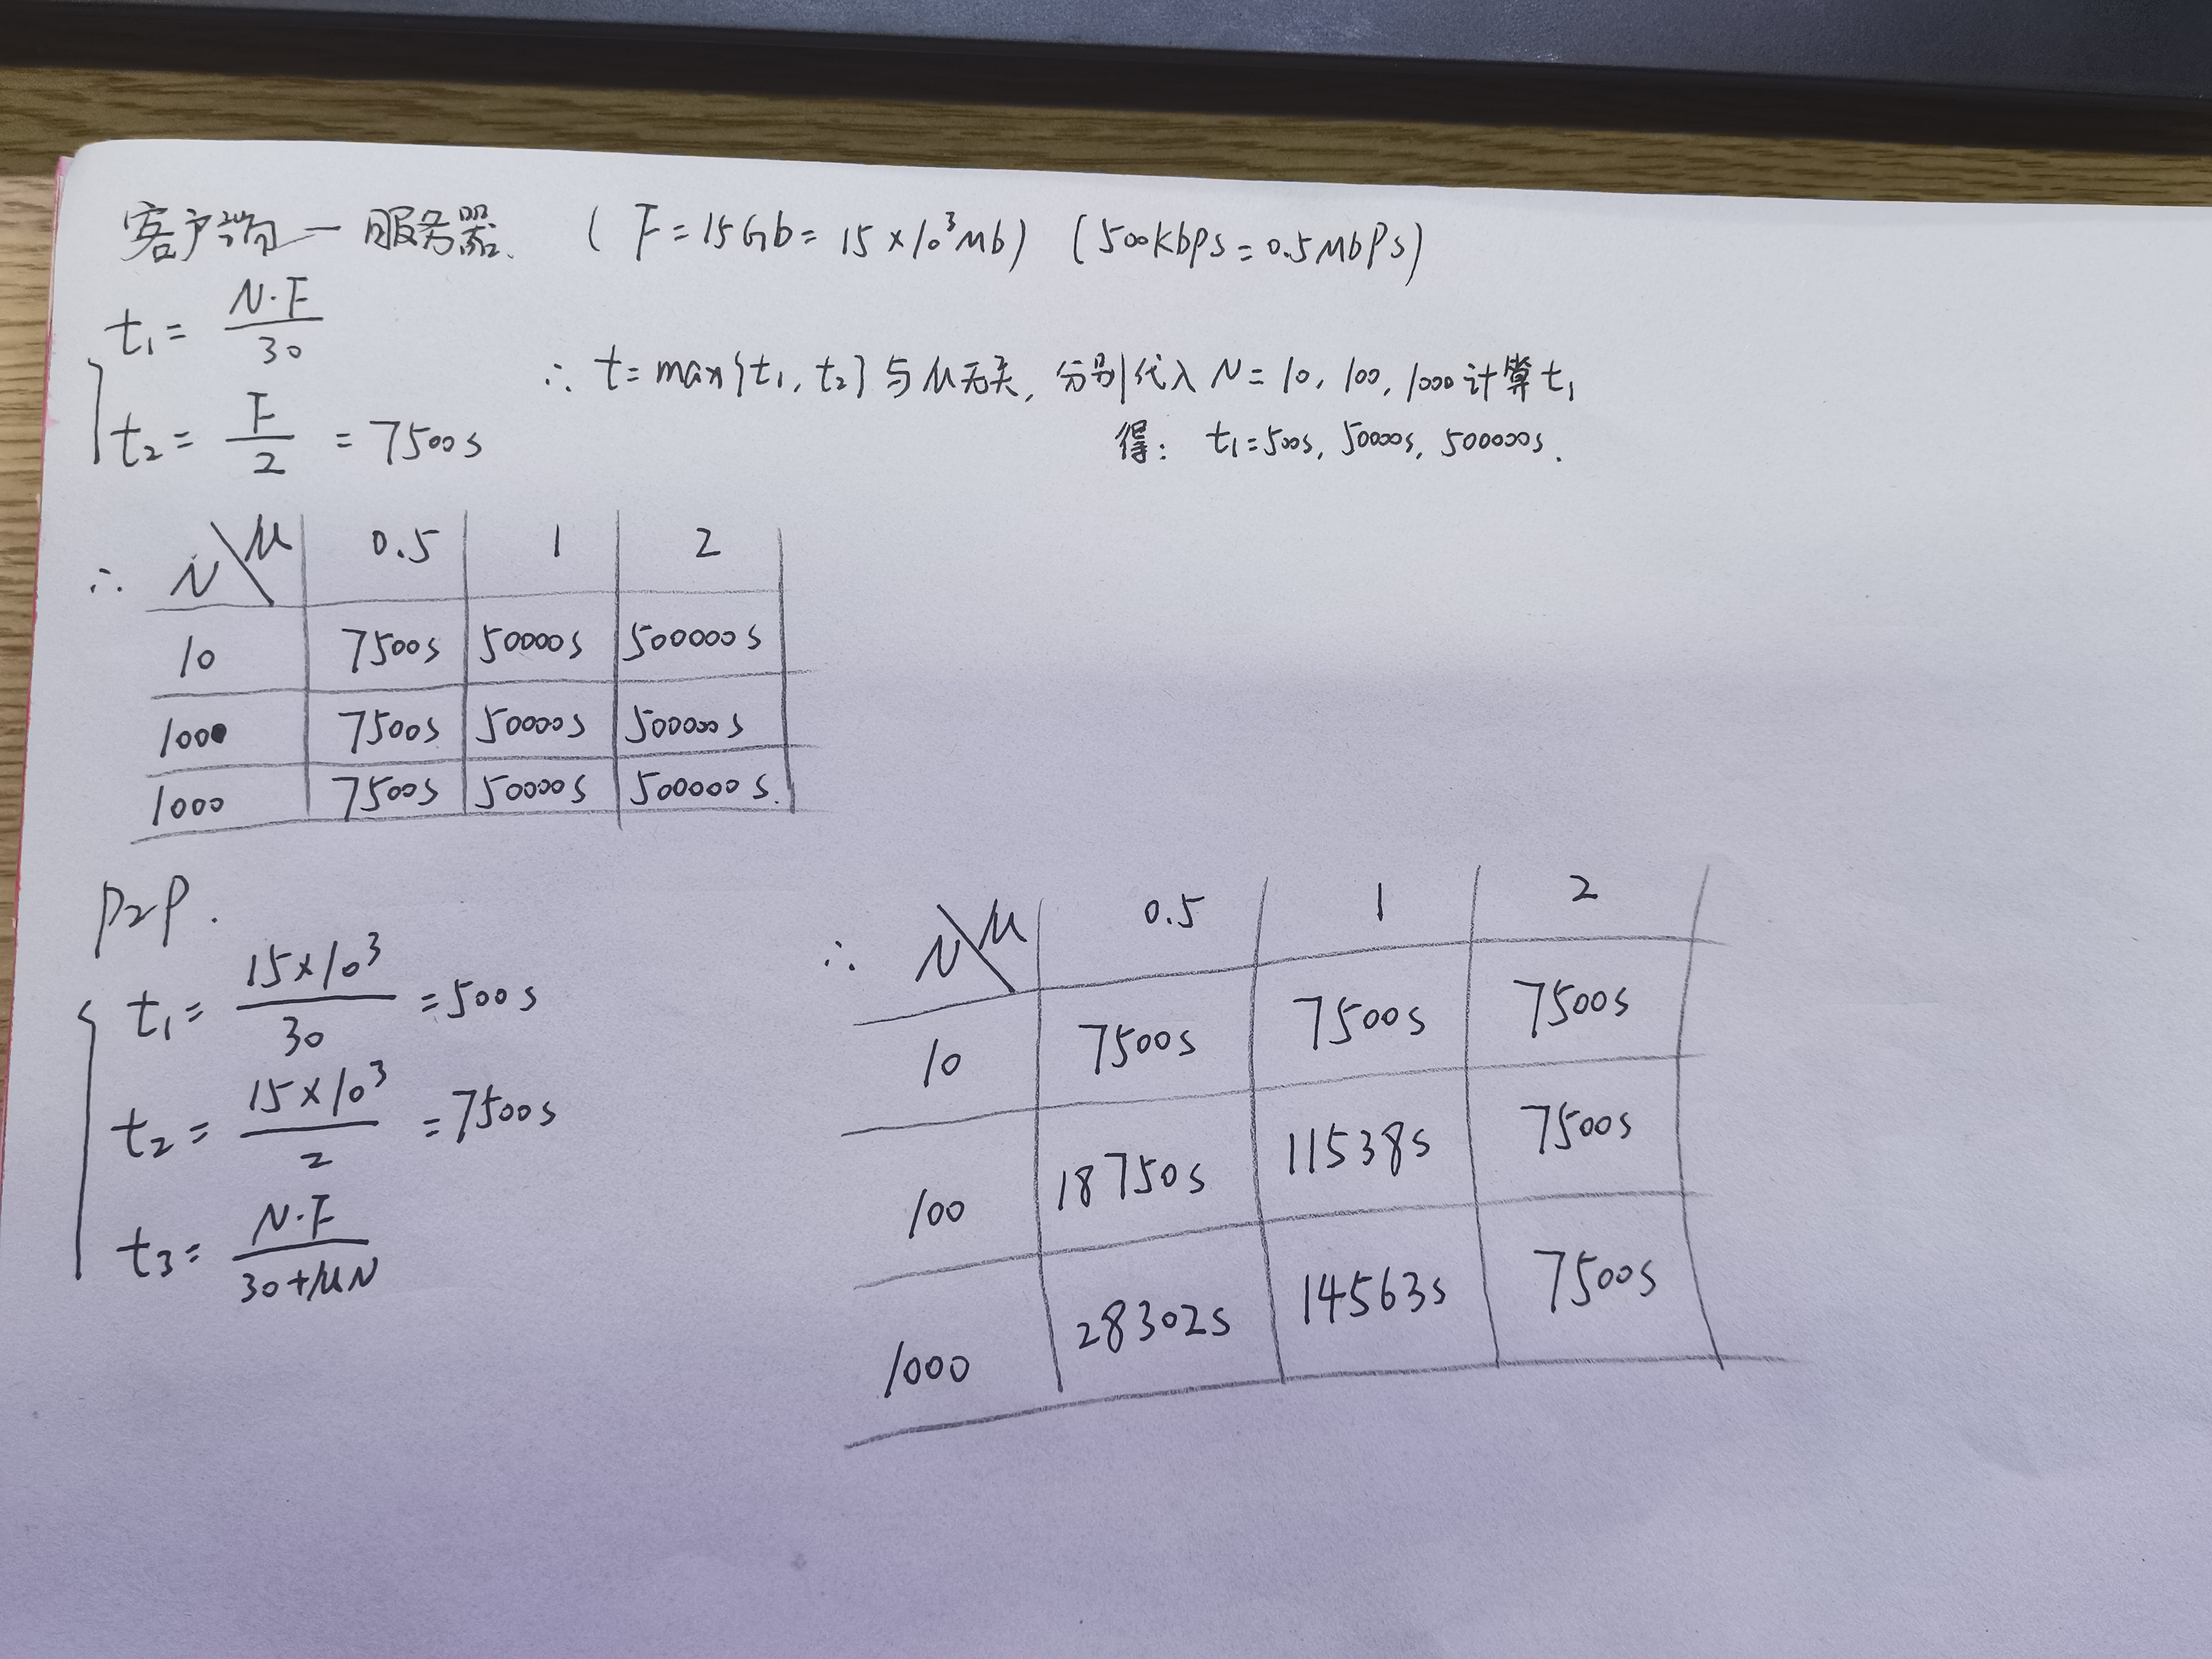 客户端－服务器. ( F = 15Gb = 15 × 10³Mb ) ( 500kbps = 0.5Mbps )
t₁ = N·F / 30
t₂ = F / 2 = 7500s
∴ t = max{t₁, t₂} 与 μ 无关, 分别代入 N = 10, 100, 1000 计算 t₁
得: t₁ = 500s, 50000s, 500000s.
∴ N \ μ 0.5 1 2
10 7500s 50000s 500000s
1000 7500s 50000s 500000s
1000 7500s 50000s 500000s.
P2P.
t₁ = 15×10³ / 30 = 500s
t₂ = 15×10³ / 2 = 7500s
t₃ = N·F / 30+μN
∴ N \ μ 0.5 1 2
10 7500s 7500s 7500s
100 18750s 11538s 7500s
1000 28302s 14563s 7500s